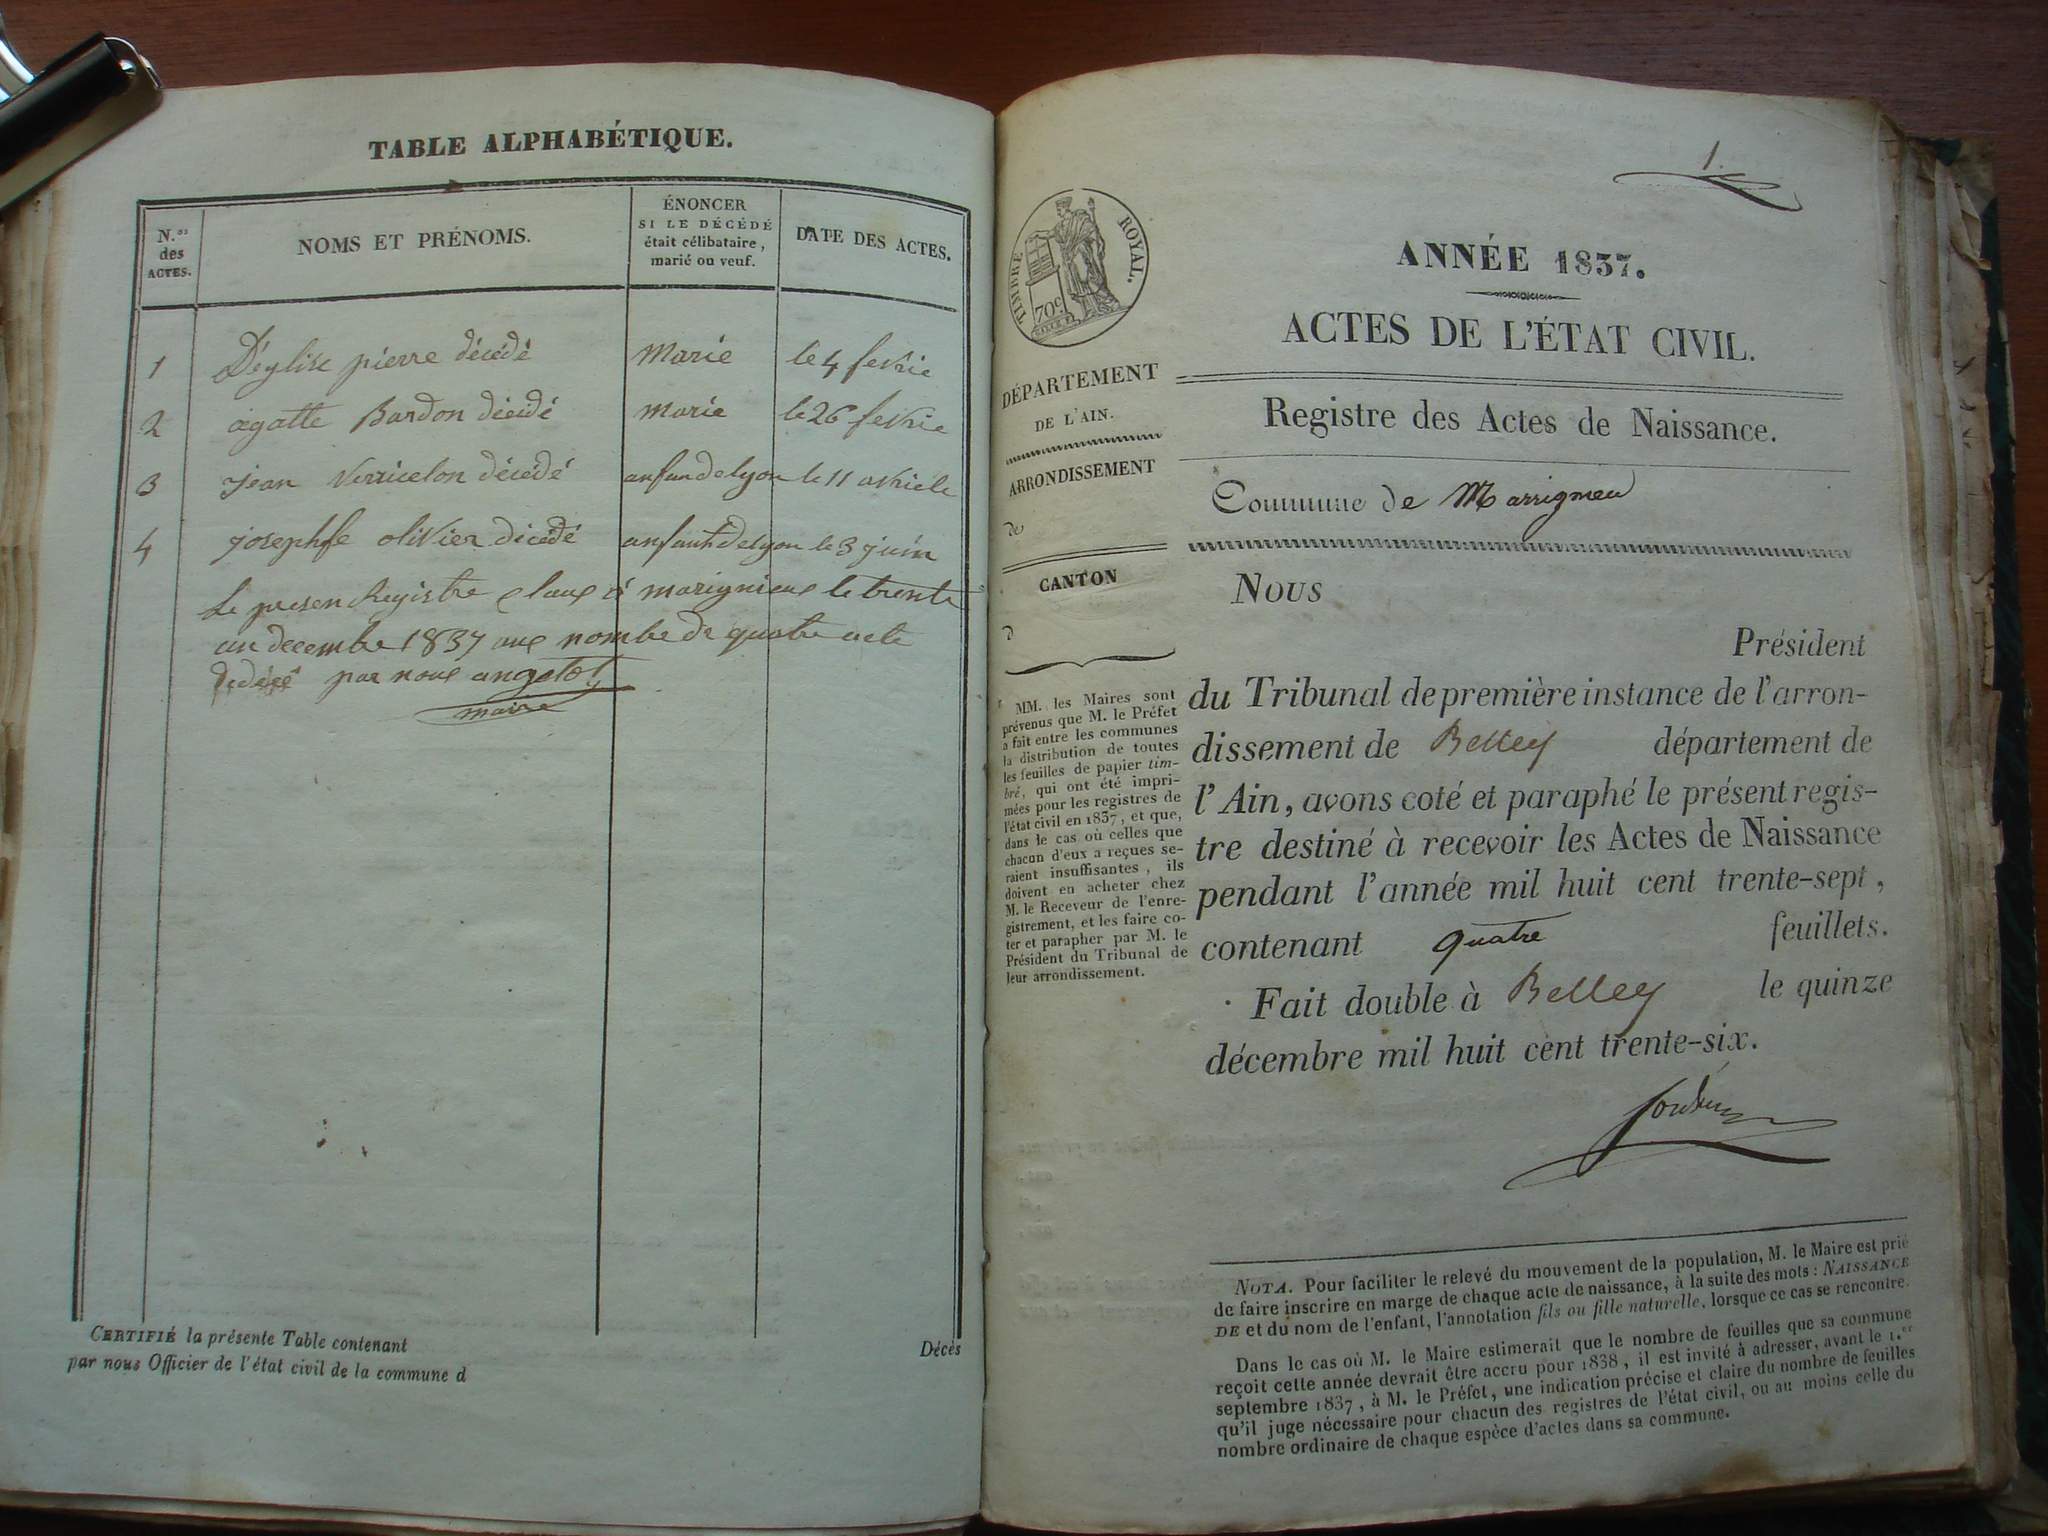 TABLE ALPHABÉTIQUE.
N.os des ACTES.
NOMS ET PRÉNOMS.
ÉNONCER
SI LE DÉCÉDÉ
était célibataire,
marié ou veuf.
DATE DES ACTES.
1 Déglise pierre décédé marié le 4 fevrie
2 agatte Bardon décédé marié le 26 fevrie
3 jean Verricelon décédé anfandelyon le 11 avriele
4 josephfe olivier décédé anfantdelyon le 3 juin
Le presen Registre claux à marignieux le trente
un decembre 1837 aux nombre de quatre acte
décéés par nous angelot
maire
CERTIFIÉ la présente Table contenant Décès
par nous Officier de l'état civil de la commune d
1.
TIMBRE ROYAL.
70c.
DÉPARTEMENT
DE L'AIN.
ARRONDISSEMENT
de
CANTON
d
MM. les Maires sont
prévenus que M. le Préfet
a fait entre les communes
la distribution de toutes
les feuilles de papier tim-
bré, qui ont été impri-
mées pour les registres de
l'état civil en 1837, et que,
dans le cas où celles que
chacun d'eux a reçues se-
raient insuffisantes, ils
doivent en acheter chez
M. le Receveur de l'enre-
gistrement, et les faire co-
ter et parapher par M. le
Président du Tribunal de
leur arrondissement.
ANNÉE 1837.
ACTES DE L'ÉTAT CIVIL.
Registre des Actes de Naissance.
Commune de Marrigneu
Nous
Président
du Tribunal de première instance de l'arron-
dissement de Belley département de
l'Ain, avons coté et paraphé le présent regis-
tre destiné à recevoir les Actes de Naissance
pendant l'année mil huit cent trente-sept,
contenant quatre feuillets.
Fait double à Belley le quinze
décembre mil huit cent trente-six.
NOTA. Pour faciliter le relevé du mouvement de la population, M. le Maire est prié
de faire inscrire en marge de chaque acte de naissance, à la suite des mots : NAISSANCE
DE et du nom de l'enfant, l'annotation fils ou fille naturelle, lorsque ce cas se rencontre.
Dans le cas où M. le Maire estimerait que le nombre de feuilles que sa commune
reçoit cette année devrait être accru pour 1838, il est invité à adresser, avant le 1.er
septembre 1837, à M. le Préfet, une indication précise et claire du nombre de feuilles
qu'il juge nécessaire pour chacun des registres de l'état civil, ou au moins celle du
nombre ordinaire de chaque espèce d'actes dans sa commune.